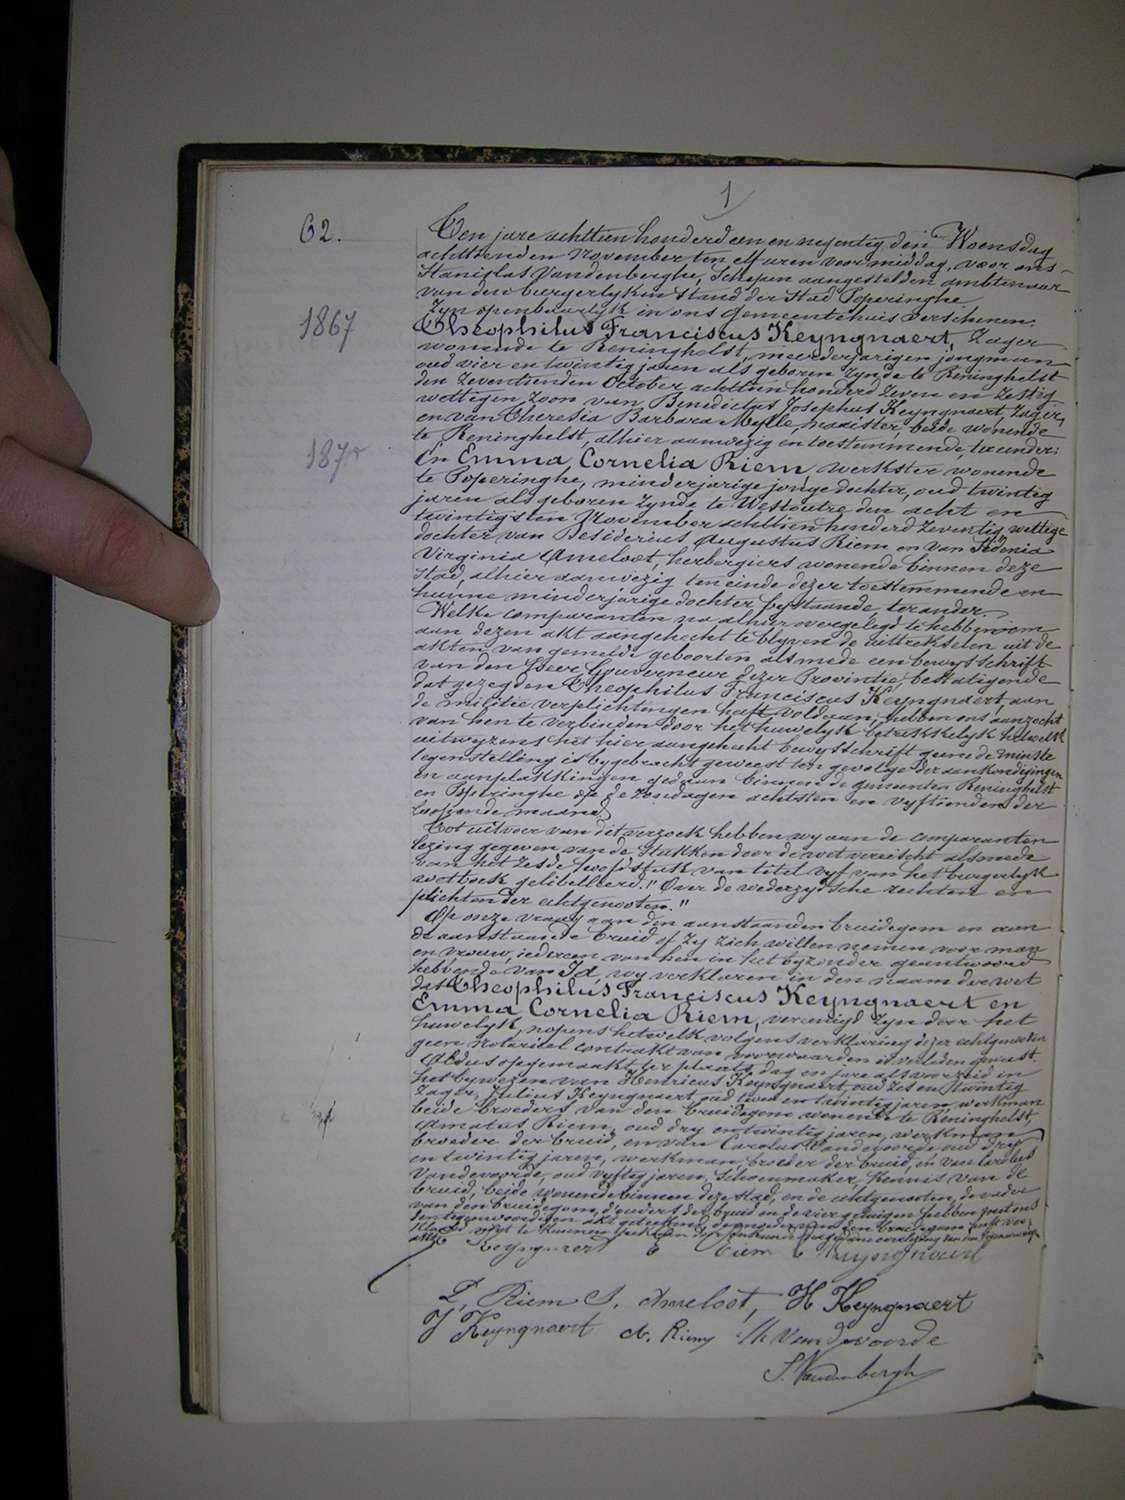 1
62.
Den jare achttien honderd een en negentig den Woensdag
achttienden November ten elf uren voormiddag, voor ons
Stanislas Vandenberghe, Schepen aangestelden ambtenaar
van den burgerlyken stand der Stad Poperinghe
Zyn openbaarlyk in ons gemeentehuis verschenen:
1867
Theophilus Franciscus Keyngnaert, Zager
wonende te Reninghelst, meerderjarigen jongman
oud vier en twintig jaren als geboren zynde te Reninghelst
den zeventienden October achttien honderd zeven en zestig
wettigen zoon van Benedictus Josephus Keyngnaert, zager,
en van Theresia Barbara Mylle, beide wonende
te Reninghelst, alhier aanwezig en toestemmende, ter eender;
187
En Emma Cornelia Riem, werkster wonende
te Poperinghe, minderjarige jonge dochter, oud twintig
jaren als geboren zynde te Westoutre den acht en
twintigsten November achttien honderd zeventig, wettige
dochter van Desiderius Augustus Riem en van Sidonia
Virginia Ameloot, herbergiers wonende binnen deze
stad, alhier aanwezig ten einde dezer toestemmende en
hunne minderjarige dochter bystaande, ter ander.
Welke comparanten na alhier nergelegd te hebben om
aan dezen akt aangehecht te blyven de uittrekselen uit de
akten van gemelde geboorten alsmede een bewysschrift
van den Heer Gouverneur dezer Provintie, bestatigende
dat gezegden Theophilus Franciscus Keyngnaert, aan
de militie verplichtingen heeft voldaan, hebben ons aanzocht
van hen te verbinden door het huwelyk betrekkelyk hetwelk
uitwyzens het hier aangehecht bewysschrift geene de minste
tegenstelling is bygebracht geweest ten gevolge der aankondigingen
en aanplakkingen gedaan binnen de gemeenten Reninghelst
en Poperinghe op de zondagen achtsten en vyftienden der
loopende maand.
Tot uitvoer van dit verzoek hebben wy aan de comparanten
lezing gegeven van de stukken door de wet vereischt alsmede
van het zesde hoofdstuk van titel vyf van het burgerlyk
wetboek gelibelleerd: "Over de wederzydsche rechten en
plichten der echtgenooten."
Op onze vraag aan den aanstaanden bruidegom en aan
de aanstaande bruid of zy zich willen nemen voor man
en vrouw, iedereen van hen in het byzonder geantwoord
hebbende van Ja, wy verklaren in den naam der wet
dat Theophilus Franciscus Keyngnaert en
Emma Cornelia Riem, vereenigd zyn door het
huwelyk, nopens hetwelk volgens verklaring dezer echtgenooten
geen notarieel contrakt van voorwaarden is verleden geweest.
Aldus opgemaakt ter plaats, dag en jare als voorzeid in
het bywezen van Henricus Keyngnaert, oud zes en twintig
Zager, Julius Keyngnaert, oud twee en twintig jaren, werkman
beide broeders van den bruidegom wonende te Reninghelst,
Amatus Riem, oud dry en twintig jaren, werkman
broeder der bruid, en van Carolus Vandevoorde oud dry
en twintig jaren, werkman, broeder der bruid, en van Carolus
Vandevoorde, oud vyftig jaren, Schoenmaker, kennis van de
bruid, beide wonende binnen deze stad, en de echtgenooten, de vader
van den bruidegom, d'ouders der bruid en de vier getuigen hebben met ons
den tegenwoordigen akt geteekend, de moeder van den bruidegom heeft ver-
klaard niet te kunnen
akte
Keyngnaert E Riem B Keyngnaert
D. Riem S. Ameloot, H Keyngnaert
J Keyngnaert A. Riem Ch Vandevoorde
S. Vandenberghe